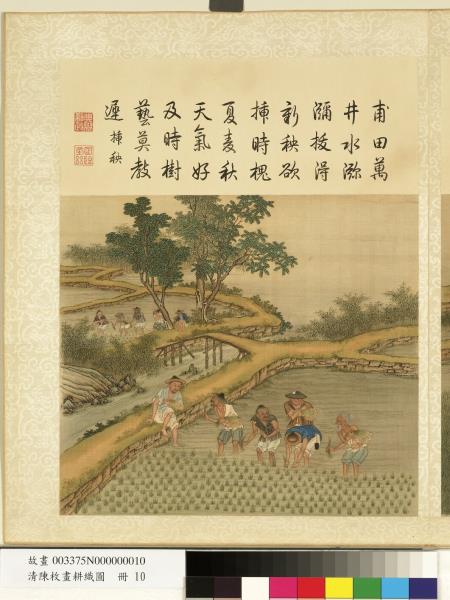 甫田萬
井水瀰
瀰拔得
新秧欲
挿時槐
夏麥秋
天氣好
及時樹
藝莫教
遲 挿秧
故畫 003375N000000010
清陳枚畫耕織圖 冊 10